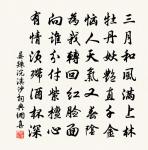 三月和風滿上林
牡丹妖豔直千金
惱人天氣又春陰
為我轉回紅臉面
向誰分付紫檀心
有情須殢酒杯深
晏殊浣溪沙詞